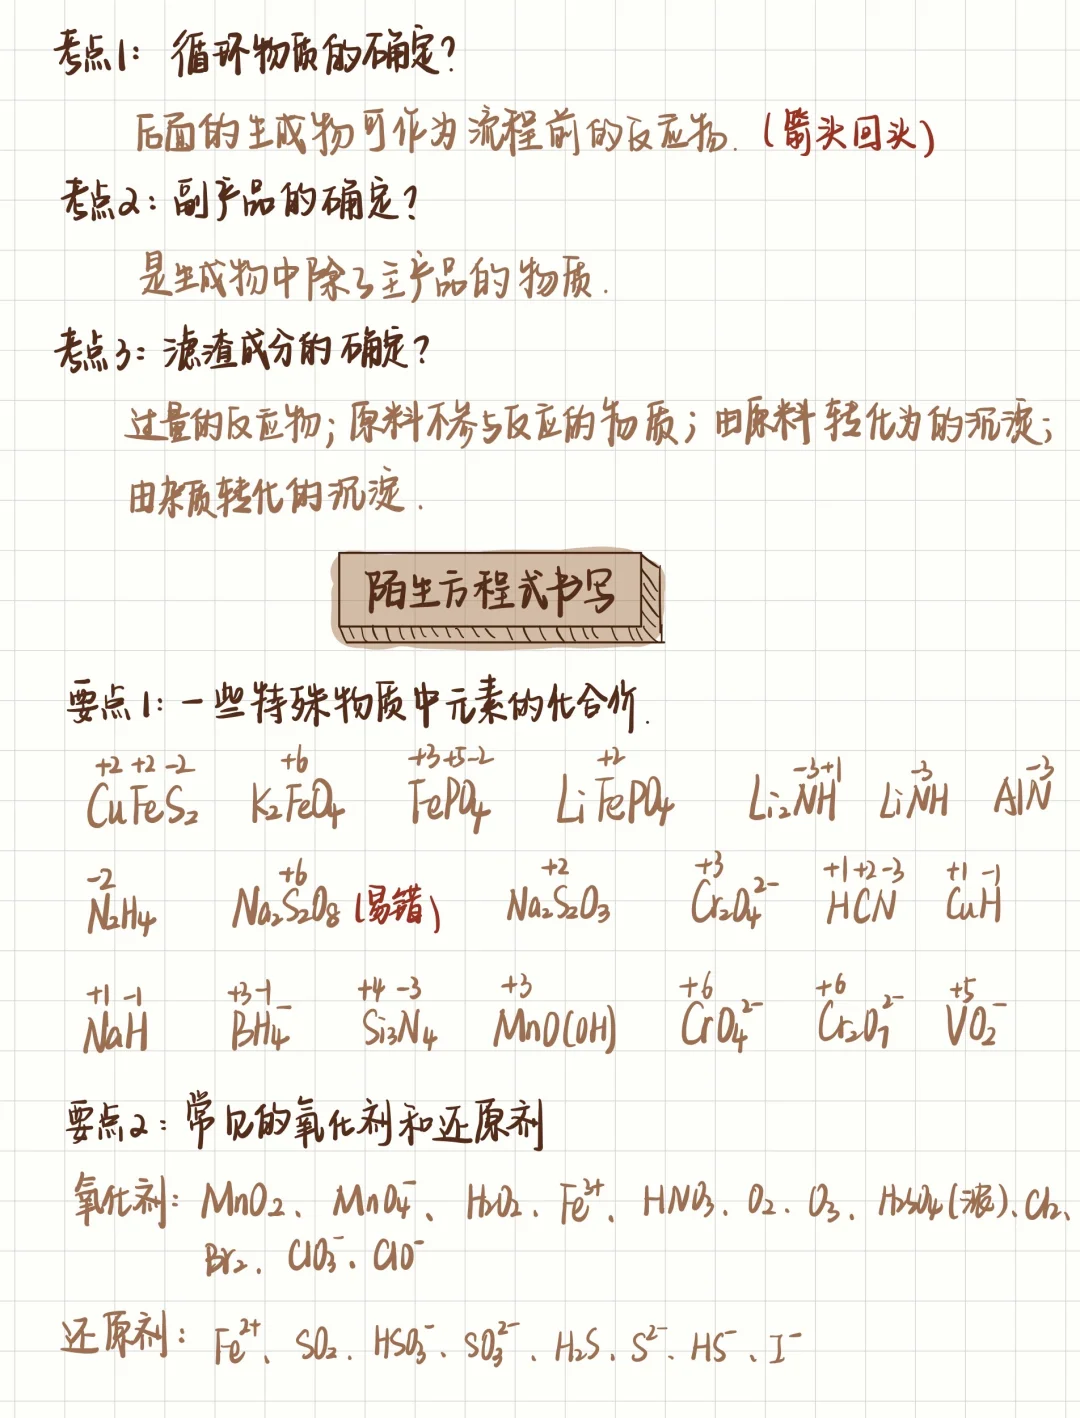 考点1: 循环物质的确定?
后面的生成物可作为流程前的反应物.(箭头回头)
考点2: 副产品的确定?
是生成物中除了主产品的物质.
考点3: 滤渣成分的确定?
过量的反应物; 原料不参与反应的物质; 由原料转化为的沉淀;
由杂质转化的沉淀.
陌生方程式书写
要点1: 一些特殊物质中元素的化合价.
+2 +2 -2 +6 +3 +5 -2 +2 -3 +1 -3 -3
CuFeS₂ K₂FeO₄ FePO₄ LiFePO₄ Li₂NH LiNH AlN
-2 +6 +2 +3 +1 +2 -3 +1 -1
N₂H₄ Na₂S₂O₈(易错) Na₂S₂O₃ Cr₂O₄²⁻ HCN CuH
+1 -1 +3 -1 +4 -3 +3 +6 +6 +5
NaH BH₄⁻ Si₃N₄ MnO(OH) CrO₄²⁻ Cr₂O₇²⁻ VO₂⁻
要点2: 常见的氧化剂和还原剂
氧化剂: MnO₂、MnO₄⁻、H₂O₂、Fe³⁺、HNO₃、O₂、O₃、H₂SO₄(浓)、Cl₂、
Br₂、ClO₃⁻、ClO⁻
还原剂: Fe²⁺、SO₂、HSO₃⁻、SO₃²⁻、H₂S、S²⁻、HS⁻、I⁻